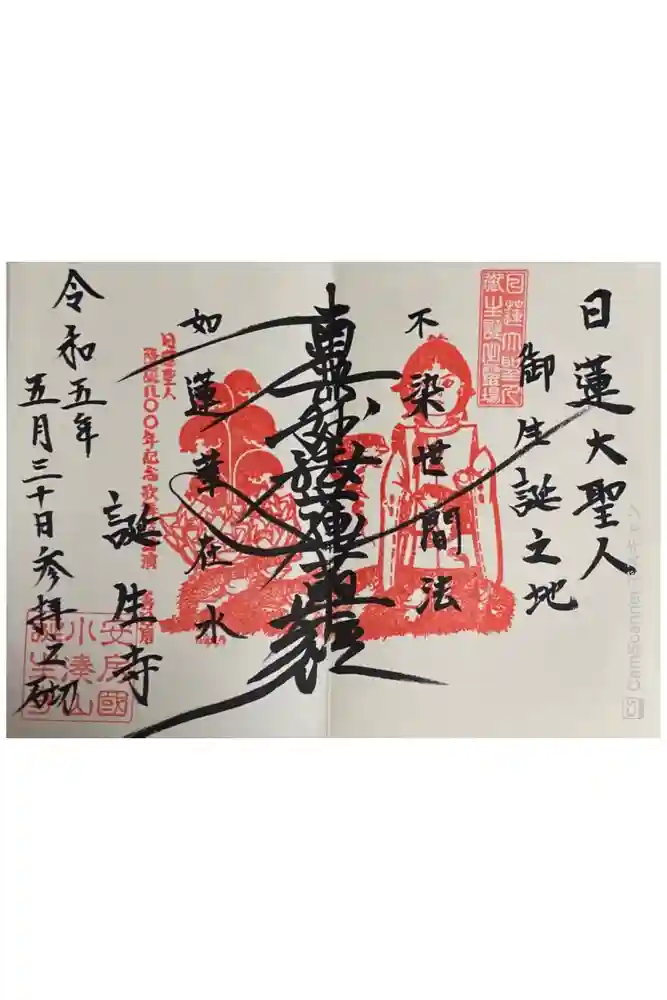 日蓮大聖人
御生誕之地
日蓮大聖人
御生誕霊場
不染世間法
南無妙法蓮華経
如蓮華在水
日蓮聖人
降誕八〇〇年記念
誕生寺
令和五年
五月三十日参拝之砌
安房國
小湊山
誕生寺
CamScanner